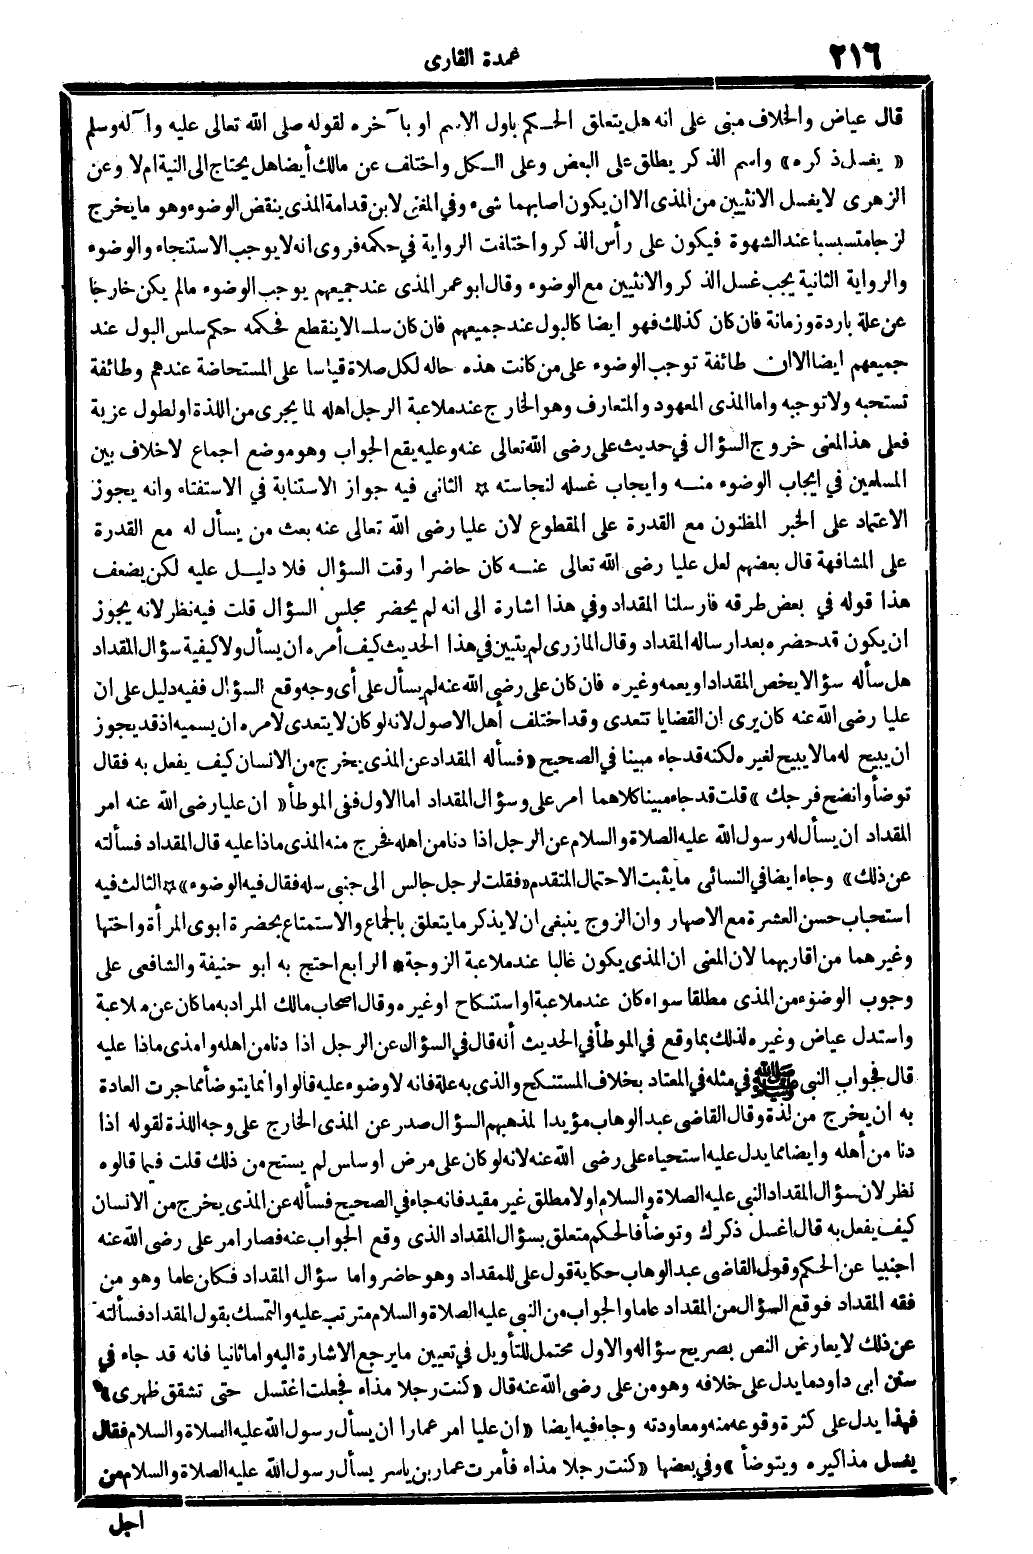 ٢١٦
عمدة القارى
قال عياض والخلاف مبنى على انه هل يتعلق الحكم باول الاسم او بآخره لقوله صلى الله تعالى عليه وآله وسلم
« يغسل ذكره» واسم الذكر يطلق على البعض وعلى الكل واختلف عن مالك أيضا هل يحتاج الى النية ام لا وعن
الزهرى لا يغسل الانثيين من المذى الا ان يكون اصابهما شىء وفي المغنى لابن قدامة المذى ينقض الوضوء وهو ما يخرج
لزجا متسبسبا عند الشهوة فيكون على رأس الذكر واختلفت الرواية في حكمه فروى انه لا يوجب الاستنجاء والوضوء
والرواية الثانية يجب غسل الذكر والانثيين مع الوضوء وقال ابو عمر المذى عند جميعهم يوجب الوضوء مالم يكن خارجا
عن علة باردة وزمانة فان كان كذلك فهو ايضا كالبول عند جميعهم فان كان سلسا لا ينقطع فحكمه حكم سلس البول عند
جميعهم ايضا الا ان طائفة توجب الوضوء على من كانت هذه حاله لكل صلاة قياسا على المستحاضة عندهم وطائفة
تستحبه ولا توجبه واما المذى المعهود والمتعارف وهو الخارج عند ملاعبة الرجل اهله لما يجرى من اللذة او لطول عزبة
فعلى هذا المعنى خروج السؤال في حديث على رضى الله تعالى عنه وعليه يقع الجواب وهو موضع اجماع لا خلاف بين
المسلمين في ايجاب الوضوء منه وايجاب غسله لنجاسته ☆ الثانى فيه جواز الاستنابة في الاستفتاء وانه يجوز
الاعتماد على الخبر المظنون مع القدرة على المقطوع لان عليا رضى الله تعالى عنه بعث من يسأل له مع القدرة
على المشافهة قال بعضهم لعل عليا رضى الله تعالى عنه كان حاضرا وقت السؤال فلا دليل عليه لكن يضعف
هذا قوله في بعض طرقه فأرسلنا المقداد وفي هذا اشارة الى انه لم يحضر مجلس السؤال قلت فيه نظر لانه يجوز
ان يكون قد حضره بعد ارساله المقداد وقال المازرى لم يتبين في هذا الحديث كيف أمره ان يسأل ولا كيفية سؤال المقداد
هل سأله سؤالا يخص المقداد او يعمه وغيره فان كان على رضى الله عنه لم يسأل على أى وجه وقع السؤال ففيه دليل على ان
عليا رضى الله عنه كان يرى ان القضايا تتعدى وقد اختلف أهل الاصول لانه لو كان لا يتعدى لامره ان يسميه اذ قد يجوز
ان يبيح له مالا يبيح لغيره لكنه قد جاء مبينا في الصحيح « فسأله المقداد عن المذى يخرج من الانسان كيف يفعل به فقال
توضأ وانضح فرجك » قلت قد جاء مبينا كلاهما امر على وسؤال المقداد اما الاول ففى الموطأ « ان عليا رضى الله عنه امر
المقداد ان يسأل له رسول الله عليه الصلاة والسلام عن الرجل اذا دنا من اهله فخرج منه المذى ماذا عليه قال المقداد فسألته
عن ذلك» وجاء ايضا في النسائى ما يثبت الاحتمال المتقدم «فقلت لرجل جالس الى جنبى سله فقال فيه الوضوء» ☆ الثالث فيه
استحباب حسن العشرة مع الاصهار وان الزوج ينبغى ان لا يذكر ما يتعلق بالجماع والاستمتاع بحضرة ابوى المرأة واختها
وغيرهما من اقاربهما لان المعنى ان المذى يكون غالبا عند ملاعبة الزوجة * الرابع احتج به ابو حنيفة والشافعى على
وجوب الوضوء من المذى مطلقا سواء كان عند ملاعبة او استنكاح او غيره وقال اصحاب مالك المراد به ما كان عن ملاعبة
واستدل عياض وغيره لذلك بما وقع في الموطأ في الحديث أنه قال في السؤال عن الرجل اذا دنا من اهله وامذى ماذا عليه
قال فجواب النبى ﷺ في مثله في المعتاد بخلاف المستنكح والذى به علة فانه لا وضوء عليه قالوا وانما يتوضأ مما جرت العادة
به ان يخرج من لذة وقال القاضى عبد الوهاب مؤيدا لمذهبهم السؤال صدر عن المذى الخارج على وجه اللذة لقوله اذا
دنا من أهله وايضا مما يدل عليه استحياء على رضى الله عنه لانه لو كان على مرض او سلس لم يستح من ذلك قلت فيما قالوه
نظر لان سؤال المقداد النبى عليه الصلاة والسلام اولا مطلق غير مقيد فانه جاء في الصحيح فسأله عن المذى يخرج من الانسان
كيف يفعل به قال اغسل ذكرك وتوضأ فالحكم متعلق بسؤال المقداد الذى وقع الجواب عنه فصار امر على رضى الله عنه
اجنبيا عن الحكم وقول القاضى عبد الوهاب حكاية قول على للمقداد وهو حاضر واما سؤال المقداد فكان عاما وهو من
فقه المقداد فوقع السؤال من المقداد عاما والجواب من النبى عليه الصلاة والسلام مترتب عليه والتمسك بقول المقداد فسألته
عن ذلك لا يعارض النص بصريح سؤاله والاول محتمل للتأويل في تعيين ما يرجع الاشارة اليه واما ثانيا فانه قد جاء في
سنن ابى داود ما يدل على خلافه وهو من على رضى الله عنه قال « كنت رجلا مذاء فجعلت اغتسل حتى تشقق ظهرى»
فهذا يدل على كثرة وقوعه منه ومعاودته وجاء فيه ايضا « ان عليا امر عمارا ان يسأل رسول الله عليه الصلاة والسلام فقال
يغسل مذاكيره ويتوضأ » وفي بعضها « كنت رجلا مذاء فأمرت عمار بن ياسر يسأل رسول الله عليه الصلاة والسلام من
اجل